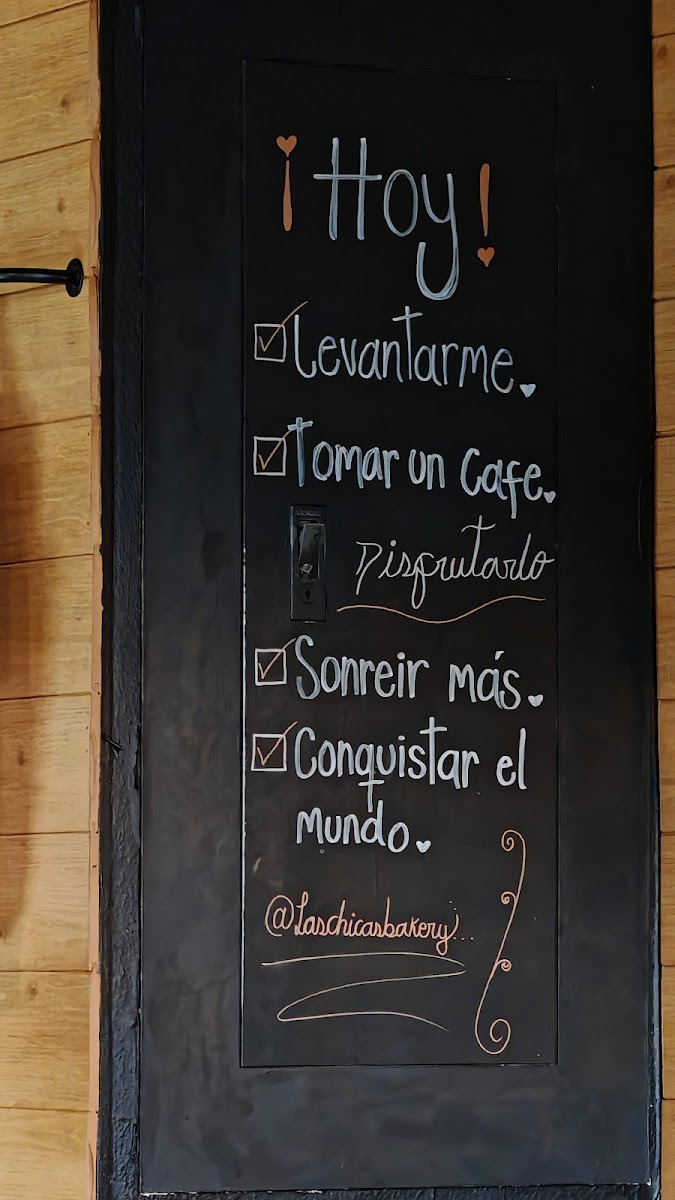 ¡Hoy!
Levantarme.
Tomar un Cafe.
Disfrutarlo
Sonreir más.
Conquistar el
mundo.
@Laschicasbakery...